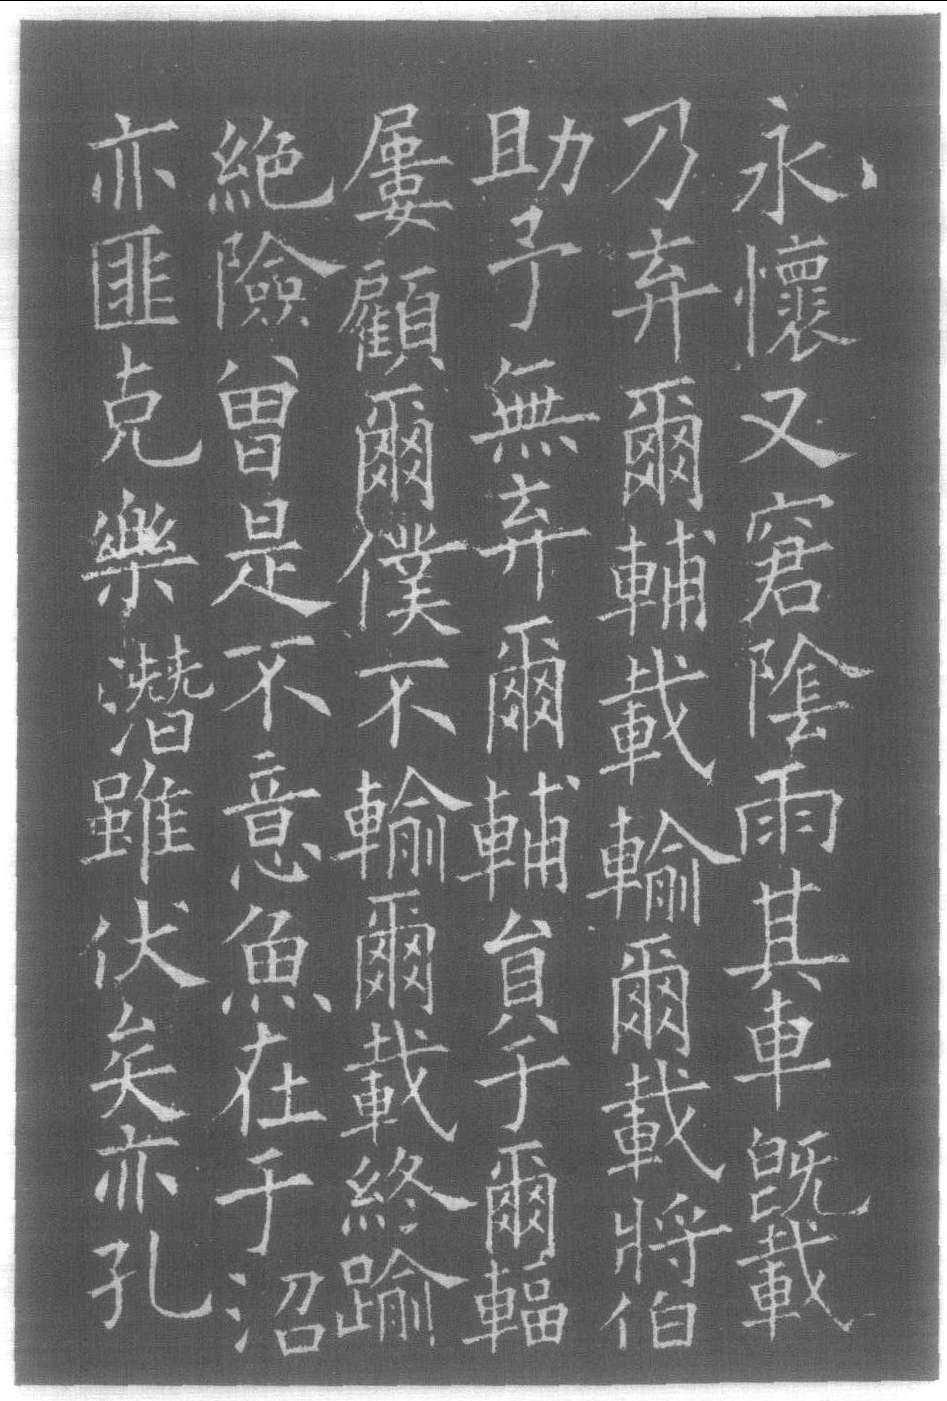 永懷又窘陰雨其車既載
乃弃爾輔載輸爾載將伯
助予無弃爾輔員于爾輻
屢顧爾僕不輸爾載終踰
絶險曾是不意魚在于沼
亦匪克樂潛雖伏矣亦孔